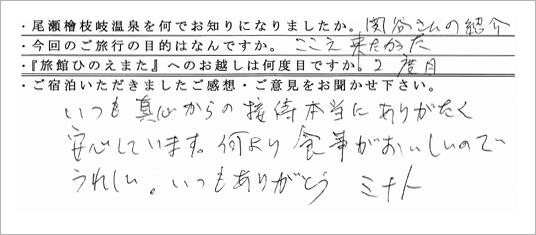 ・尾瀬檜枝岐温泉を何でお知りになりましたか。関谷さんの紹介
・今回のご旅行の目的はなんですか。ここえ来たかった
・『旅館ひのえまた』へのお越しは何度目ですか。2度目
・ご宿泊いただきましたご感想・ご意見をお聞かせ下さい。
いつも真心からの接待本当にありがたく
安心しています。何より食事がおいしいので
うれしい。いつもありがとう ミナト